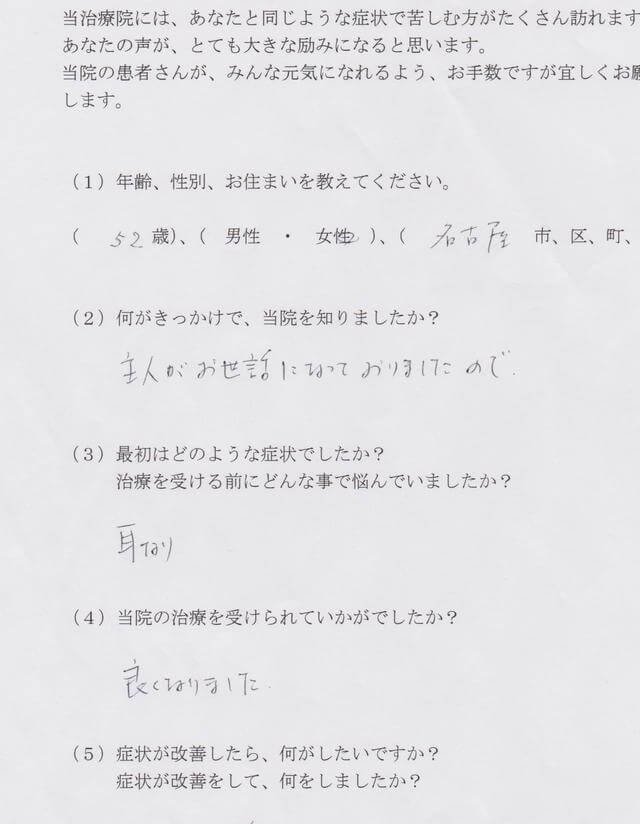 当治療院には、あなたと同じような症状で苦しむ方がたくさん訪れます
あなたの声が、とても大きな励みになると思います。
当院の患者さんが、みんな元気になれるよう、お手数ですが宜しくお願
します。
(1) 年齢、性別、お住まいを教えてください。
( 52 歳)、( 男性 ・ 女性 )、( 名古屋 市、区、町、
(2) 何がきっかけで、当院を知りましたか?
主人がお世話になっておりましたので.
(3) 最初はどのような症状でしたか?
治療を受ける前にどんな事で悩んでいましたか?
耳なり
(4) 当院の治療を受けられていかがでしたか?
良くなりました.
(5) 症状が改善したら、何がしたいですか?
症状が改善をして、何をしましたか?